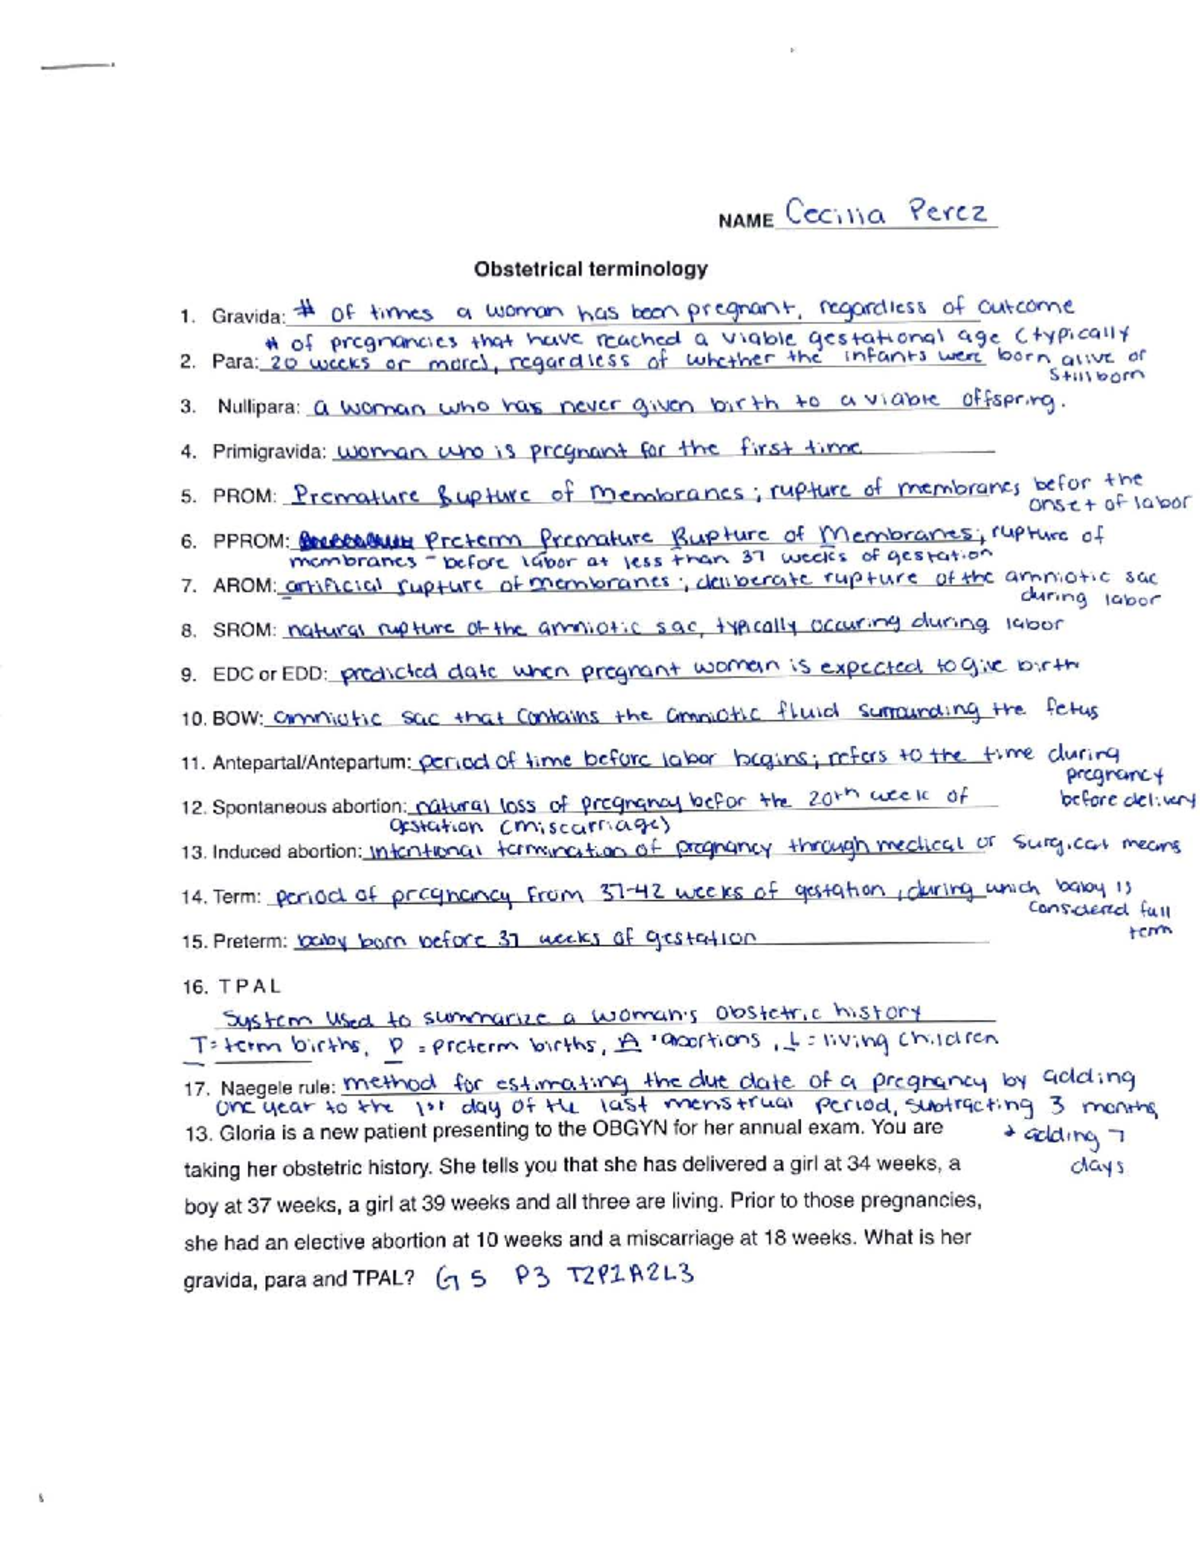 NAME Cecilia Perez
Obstetrical terminology
1. Gravida: # of times a woman has been pregnant, regardless of outcome
# of pregnancies that have reached a viable gestational age (typically
2. Para: 20 weeks or more), regardless of whether the infants were born alive or
stillborn
3. Nullipara: a woman who has never given birth to a viable offspring.
4. Primigravida: woman who is pregnant for the first time
5. PROM: Premature Rupture of Membranes; rupture of membranes befor the
onset of labor
6. PPROM: Preterm Premature Rupture of Membranes; rupture of
membranes - before labor at less than 37 weeks of gestation
7. AROM: artificial rupture of membranes; deliberate rupture of the amniotic sac
during labor
8. SROM: natural rupture of the amniotic sac, typically occuring during labor
9. EDC or EDD: predicted date when pregnant woman is expected to give birth
10. BOW: amniotic sac that contains the amniotic fluid surrounding the fetus
11. Antepartal/Antepartum: period of time before labor begins; refers to the time during
pregnancy
before delivery
12. Spontaneous abortion: natural loss of pregnancy befor the 20th week of
gestation (miscarriages)
13. Induced abortion: intentional termination of pregnancy through medical or surgical means
14. Term: period of pregnancy from 37-42 weeks of gestation, during which baby is
considered full
term
15. Preterm: baby born before 37 weeks of gestation
16. T P A L
System used to summarize a woman's obstetric history
T= term births, P = preterm births, A = abortions, L = living children
17. Naegele rule: method for estimating the due date of a pregnancy by adding
one year to the 1st day of the last menstrual period, subtracting 3 months,
+ adding 7
days
13. Gloria is a new patient presenting to the OBGYN for her annual exam. You are
taking her obstetric history. She tells you that she has delivered a girl at 34 weeks, a
boy at 37 weeks, a girl at 39 weeks and all three are living. Prior to those pregnancies,
she had an elective abortion at 10 weeks and a miscarriage at 18 weeks. What is her
gravida, para and TPAL? G5 P3 T2P1A2L3